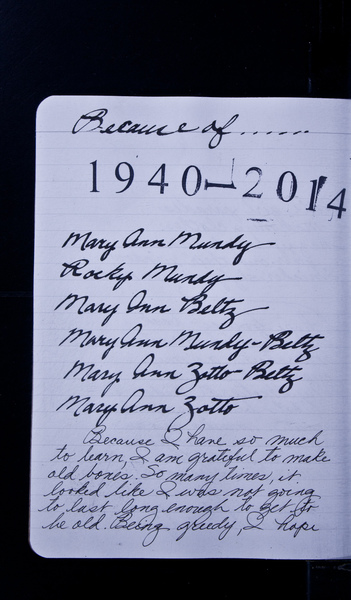 Because of ......
1940-2014
Mary Ann Mundy
Rocky Mundy
Mary Ann Beltz
Mary Ann Mundy-Beltz
Mary Ann Zotto Beltz
Mary Ann Zotto
Because I have so much
to learn, I am grateful to make
old bones. So many times, it
looked like I was not going
to last long enough to get to
be old. Being greedy, I hope